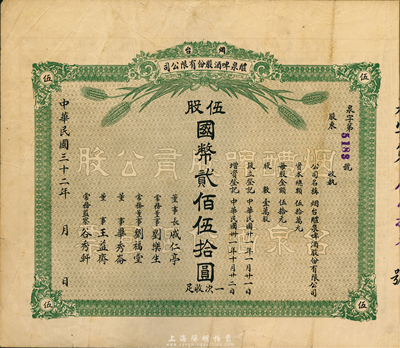 烟台
醴泉啤酒股份有限公司
泉字第5188號
股東 收執
公司名稱 烟台醴泉啤酒股份有限公司
資本總額 伍拾萬元
每股金額 伍拾元
股數 壹萬股
設立登記 中華民國十年一月廿一日
增資登記 中華民國廿一年十月廿二日
伍股
國幣貳佰伍拾圓
一次收足
董事長 戚仁亭
常務董事 劉樂生
常務董事 劉福堂
董事 畢秀斋
董事 王益齊
常務監察 谷秀軒
中華民國三十二年 月 日
伍
伍
伍
伍
號
上海泓盛拍賣